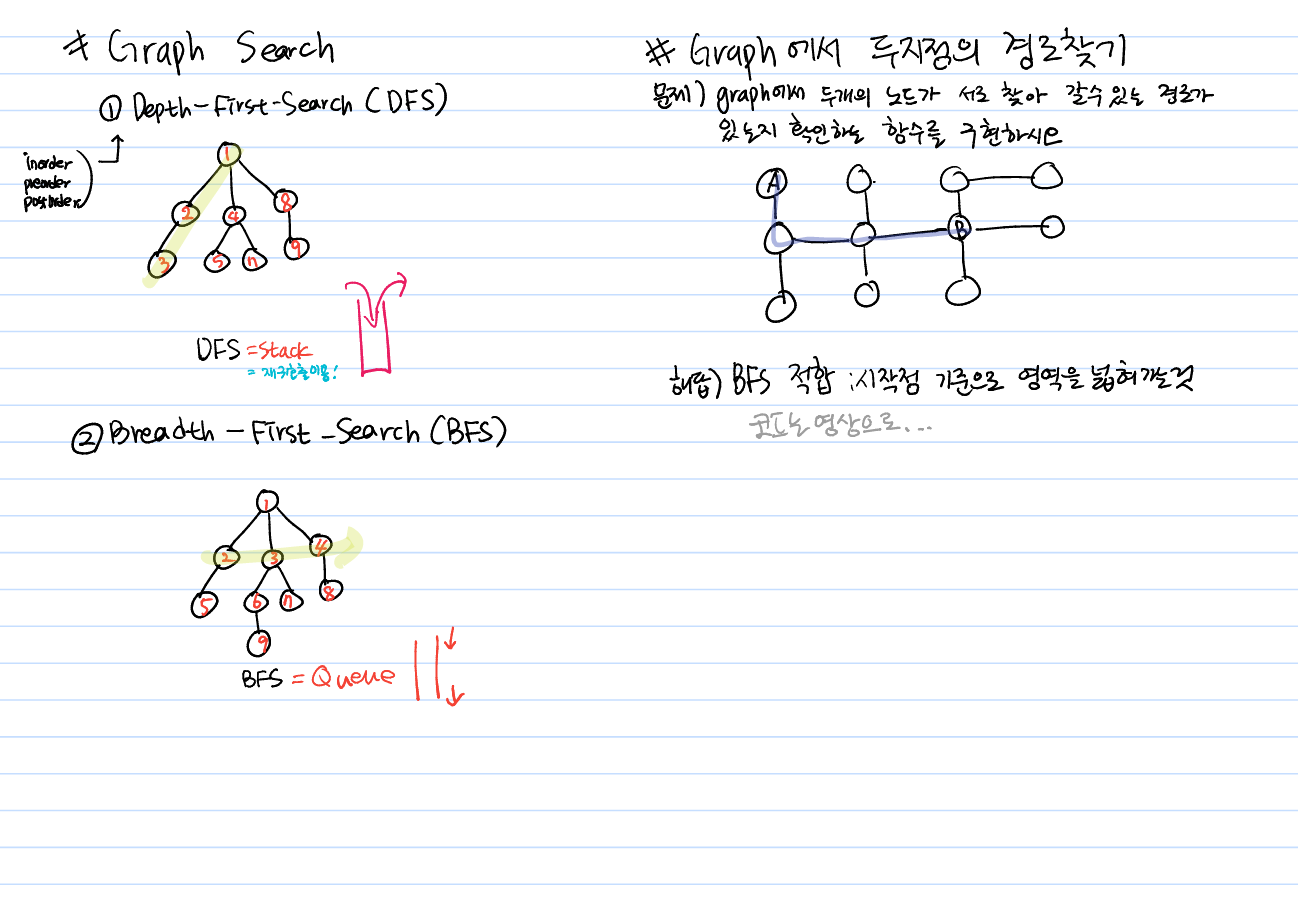 # Graph Search
① Depth-First-Search (DFS)
inorder
preorder
postorder
1
2 4 8
3 5 7 9
DFS = Stack
= 재귀호출이용!
② Breadth-First-Search (BFS)
1
2 3 4
5 6 7 8
9
BFS = Queue
# Graph에서 두지점의 경로찾기
문제) graph에서 두개의 노드가 서로 찾아 갈수있는 경로가
있는지 확인하는 함수를 구현하시오
A
B
해답) BFS 적합 : 시작점 기준으로 영역을 넓혀가는것
코드는 영상으로...